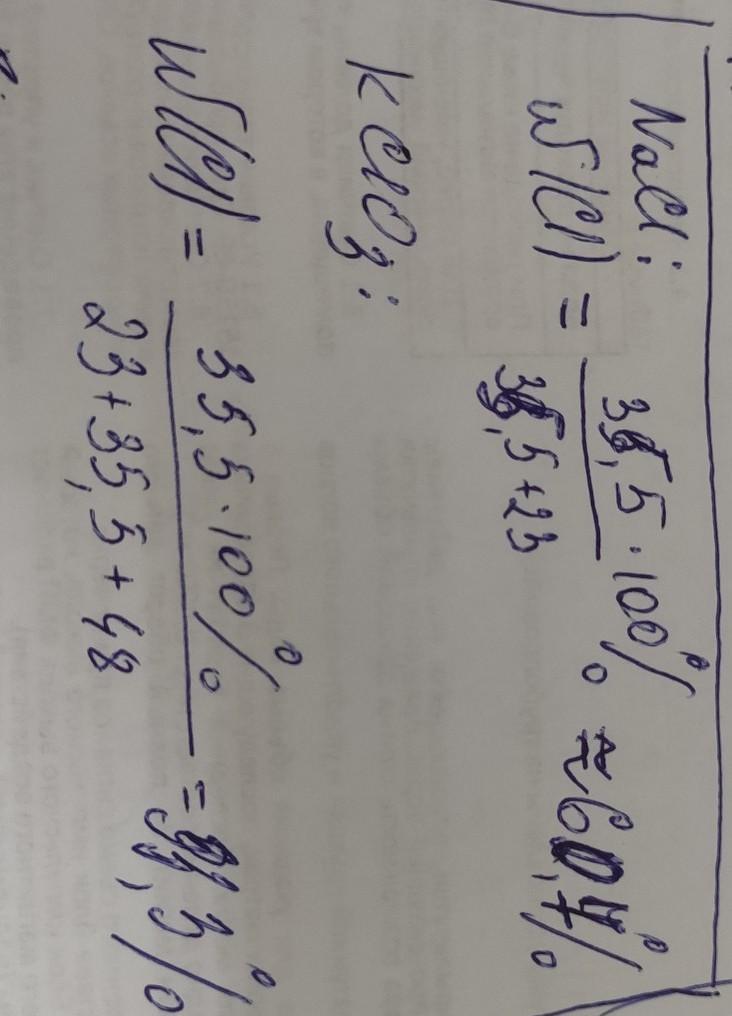 NaCl:
w(Cl) = 35,5 · 100% / 35,5 + 23 ≈ 60,7%
KClO3:
w(Cl) = 35,5 · 100% / 23 + 35,5 + 48 = ,3%